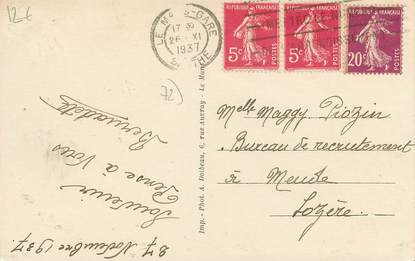 12€
LE MANS-GARE
17 30
26 XI
1937
SARTHE
RÉPUBLIQUE FRANÇAISE
5c
POSTES
RÉPUBLIQUE FRANÇAISE
5c
POSTES
RÉPUBLIQUE FRANÇAISE
20c
POSTES
72)
Melle Maggy Piozin
Bureau de recrutement
à Mende
Lozère.
Imp.-Phot. A. Dolbeau, 6, rue Auvray - Le Mans
Souvenir
Pense à Vous
Bernadette
27 Novembre 1937.